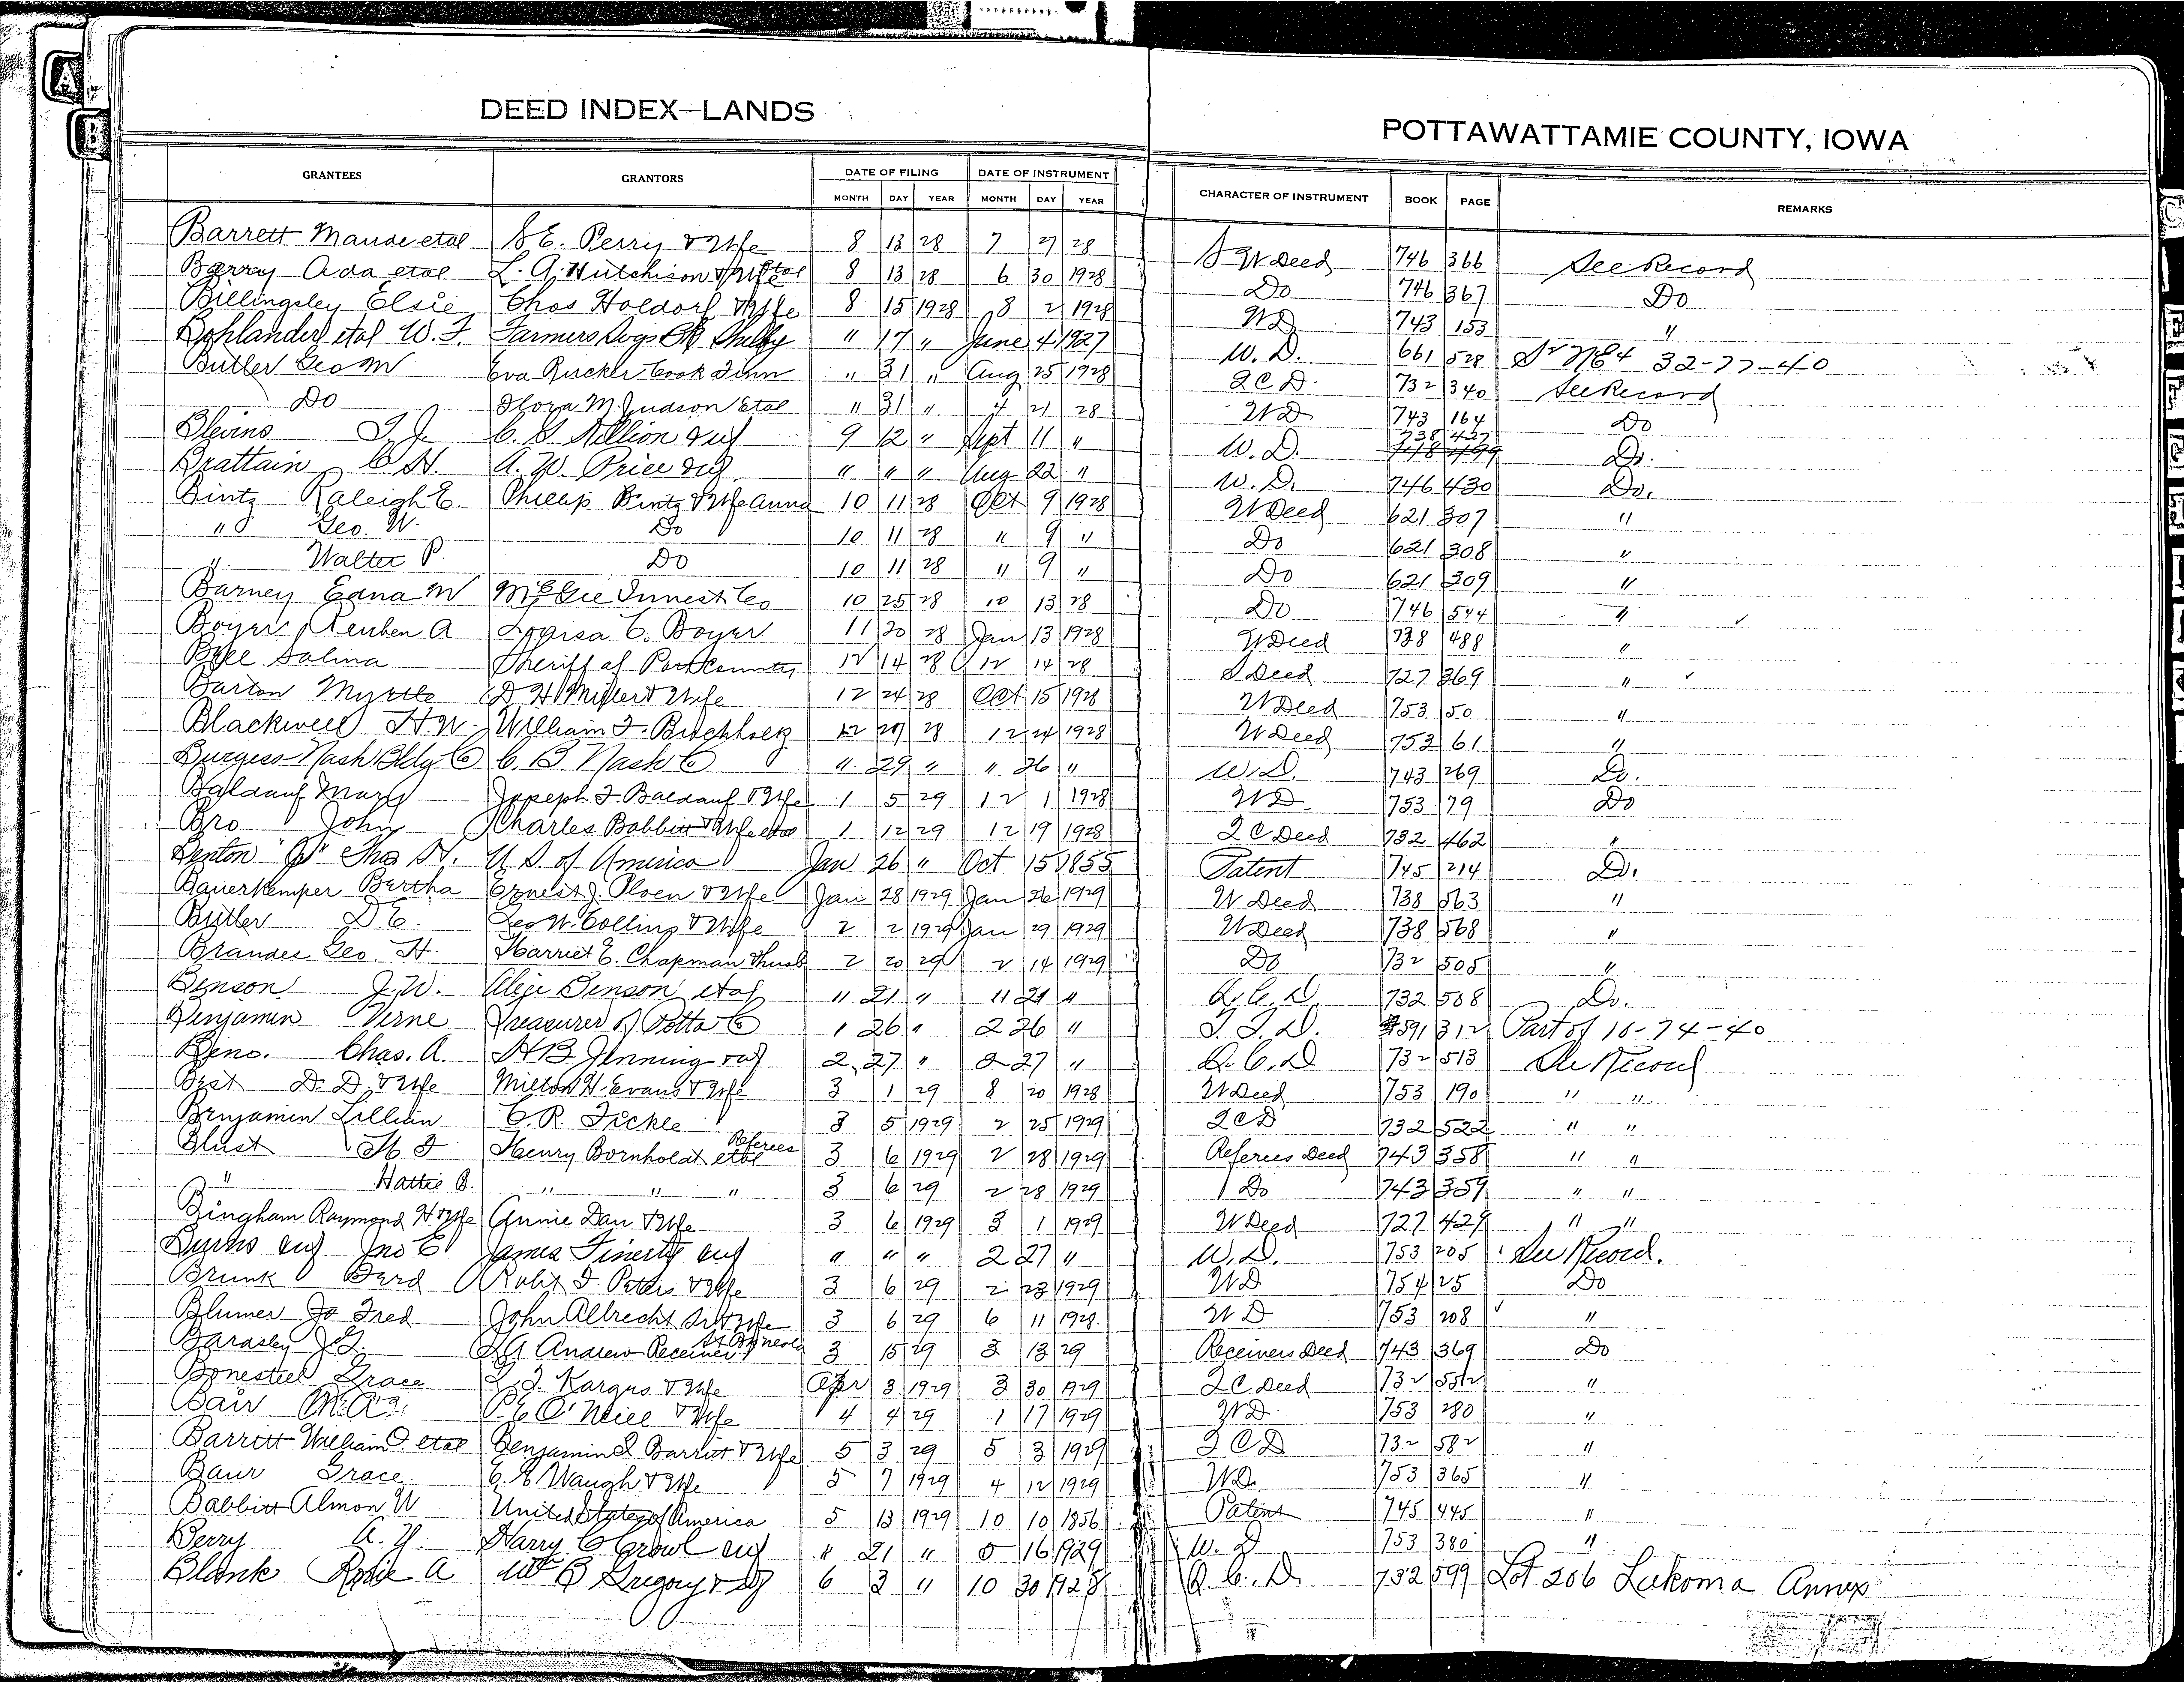 A
B
DEED INDEX—LANDS
POTTAWATTAMIE COUNTY, IOWA
GRANTEES GRANTORS DATE OF FILING DATE OF INSTRUMENT CHARACTER OF INSTRUMENT BOOK PAGE REMARKS
MONTH DAY YEAR MONTH DAY YEAR
Barrett Maude etal S.E. Perry & Wife 8 13 28 7 27 28 S W Deed 746 366 See Record
Barry Ada etal L. A. Hutchison & Wife etal 8 13 28 6 30 1928 Do 746 367 Do
Billingsley Elsie Chas Holdorf & Wife 8 15 1928 8 2 1928 WD 743 153 "
Bohlander etal W. F. Farmers Svgs Bk Shelby " 17 " June 4 1927 W. D. 661 528 32-77-40
Butler Geo M Eva Rucker Cook Finn " 31 " Aug 25 1928 Q C D. 732 340 See Record
Do Flora M. Judson Etal " 31 " 4 21 28 WD 743 164 Do
Blevins T. J. C. S. Sillion & wf 9 12 " Sept 11 " W. D. 738 427 Do.
Brattain C. H. A. W. Price & wf " " " Aug 22 " W. D. 746 430 Do.
Bintz Raleigh E. Phillip Bintz & Wife Anna 10 11 28 Oct 9 1928 W Deed 621 307 "
" Geo. W. Do 10 11 28 " 9 " Do 621 308 "
" Walter P. Do 10 11 28 " 9 " Do 621 309 "
Barney Edna M McGee Invest Co 10 25 28 10 13 28 Do 746 544 "
Boyer Reuben A Louisa C. Boyer 11 20 28 Jan 13 1928 W Deed 738 488 "
Bell Salina Sheriff of Pott County 12 14 28 12 14 28 S Deed 727 369 "
Barton Myrtle D H Miller & Wife 12 24 28 Oct 15 1928 W Deed 753 50 "
Blackwell H. W. William F. Buchholz 12 27 28 12 24 1928 W Deed 753 61 "
Burgess-Nash Bldg Co C. B. Nash Co " 29 " " 26 " W. D. 743 269 Do.
Baldauf Mary Joseph F. Baldauf & Wife 1 5 29 12 1 1928 WD 753 79 Do
Bro John Charles Babbitt & Wife etal 1 12 29 12 19 1928 Q C Deed 732 462 "
Benton "Jr" Thos H. U. S. of America Jan 26 " Oct 15 1855 Patent 745 214 Do.
Bauerkemper Bertha Ernest J. Ploen & Wife Jan 28 1929 Jan 26 1929 W Deed 738 563 "
Butler D E. Geo W. Collins & Wife 2 2 1929 Jan 29 1929 W Deed 738 568 "
Brandes Geo. H. Harriet E. Chapman & husb 2 20 29 2 14 1929 Do 732 505 "
Benson J. W. Alice Benson etal " 21 " " 21 " Q. C. D. 732 508 Do.
Benjamin Verne Treasurer of Potta Co 1 26 " 2 26 " T. T. D. 591 312 Part of 16-74-40
Beno. Chas. A. H B Jenning & wf 2 27 " 2 27 " Q. C. D 732 513 See Record
Best D. D. & Wife Milton H. Evans & Wife 3 1 29 8 20 1928 W Deed 753 190 " "
Benjamin Lillian C. R. Fickle 3 5 1929 2 25 1929 Q C D 732 522 " "
Blust H F Henry Bornholdt etal Referees 3 6 1929 2 28 1929 Referees Deed 743 358 " "
" Hattie B. " " " 3 6 29 2 28 1929 Do 743 359 " "
Bingham Raymond H & Wife Annie Dau & Wife 3 6 1929 3 1 1929 W Deed 727 429 " "
Burns & wf Jno E James Finerty & wf " " " 2 27 " W. D. 753 205 See Record.
Brunk Berd Robt F. Peters & Wife 3 6 29 2 23 1929 WD 754 25 Do
Blumer Jo Fred John Albrecht Sr & Wife 3 6 29 6 11 1928 WD 753 208 "
Bardsley J. G. L A Andrew Receiver 3 15 29 3 13 29 Receivers Deed 743 369 Do
Bonestiel Grace Kargus & Wife Apr 3 1929 3 30 1929 Q C Deed 732 "
Bair P. E. O'Neill & Wife 4 4 29 1 17 1929 WD 753 280 "
Barritt William etal Benjamin S Barritt & Wife 5 3 29 5 3 1929 Q C D 732 582 "
Baur Grace C. E. Waugh & Wife 5 7 1929 4 12 1929 W D. 753 365 "
Babbitt Almon W United States of America 5 13 1929 10 10 1856 Patent 745 445 "
Berry A. Y. Harry C Crowl & wf " 21 " 5 16 1929 W. D 753 380 "
Blank Rosie A Wm B Gregory & wf 6 3 " 10 30 1928 Q. C. D 732 599 Lot 206 Lakoma Annex